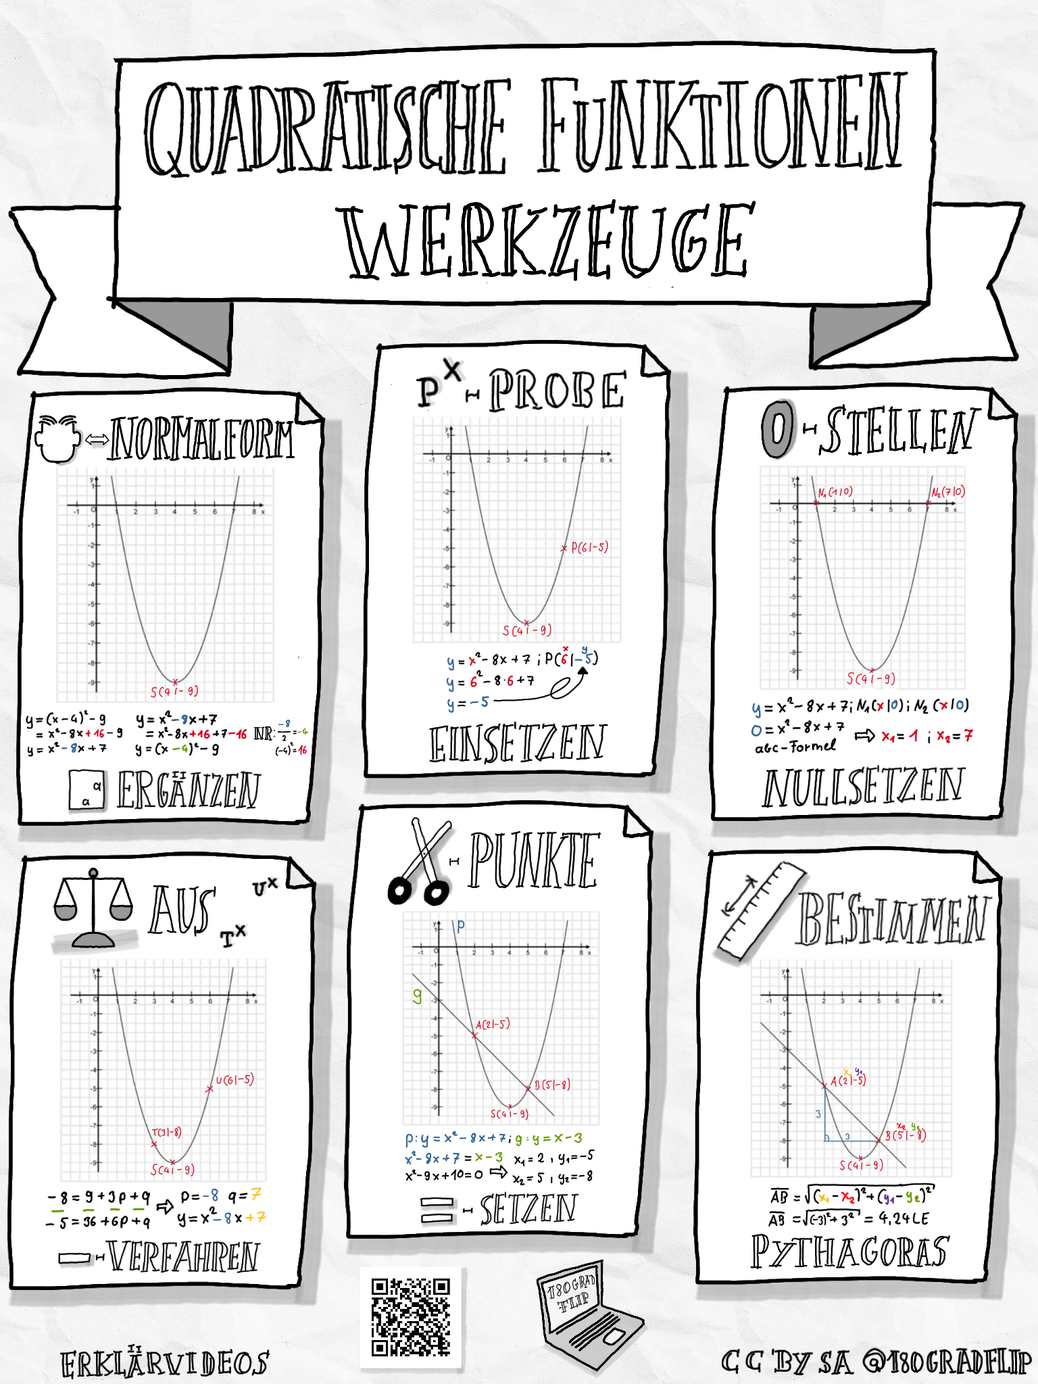 QUADRATISCHE FUNKTIONEN
WERKZEUGE
⇔ NORMALFORM
S(4|-9)
y = (x-4)² - 9
= x² - 8x + 16 - 9
y = x² - 8x + 7
y = x² - 8x + 7
= x² - 8x + 16 + 7 - 16
y = (x - 4)² - 9
NR: -8/2 = -4
(-4)² = 16
a
a
ERGÄNZEN
P x - PROBE
P(6|-5)
S(4|-9)
y = x² - 8x + 7 ; P(6|-5)
x y
y = 6² - 8·6 + 7
y = -5
EINSETZEN
0 - STELLEN
N₁(1|0)
N₂(7|0)
S(4|-9)
y = x² - 8x + 7; N₁(x|0); N₂(x|0)
0 = x² - 8x + 7
abc-Formel ⇒ x₁ = 1 ; x₂ = 7
NULLSETZEN
AUS
U x
T x
U(6|-5)
T(3|-8)
S(4|-9)
-8 = 9 + 3p + q
-5 = 36 + 6p + q
⇒ p = -8 q = 7
y = x² - 8x + 7
- VERFAHREN
- PUNKTE
p
g
A(2|-5)
B(5|-8)
S(4|-9)
p: y = x² - 8x + 7; g: y = x - 3
x² - 8x + 7 = x - 3
x² - 9x + 10 = 0 ⇒
x₁ = 2 , y₁ = -5
x₂ = 5 , y₂ = -8
= - SETZEN
BESTIMMEN
x₁ y₁
A(2|-5)
3
3
x₂ y₂
B(5|-8)
S(4|-9)
AB = √(x₁ - x₂)² + (y₁ - y₂)²
AB = √(-3)² + 3² = 4,24 LE
PYTHAGORAS
180GRAD
FLIP
ERKLÄRVIDEOS
CC BY SA @180GRADFLIP